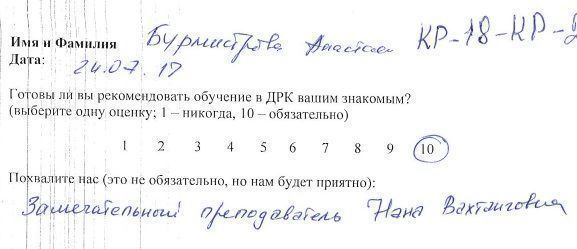 Имя и Фамилия Бурмистрова Анастасия КР-18-КР-2
Дата: 24.07.17
Готовы ли вы рекомендовать обучение в ДРК вашим знакомым?
(выберите одну оценку; 1 – никогда, 10 – обязательно)
1 2 3 4 5 6 7 8 9 10
Похвалите нас (это не обязательно, но нам будет приятно):
Замечательный преподаватель Нана Вахтанговна